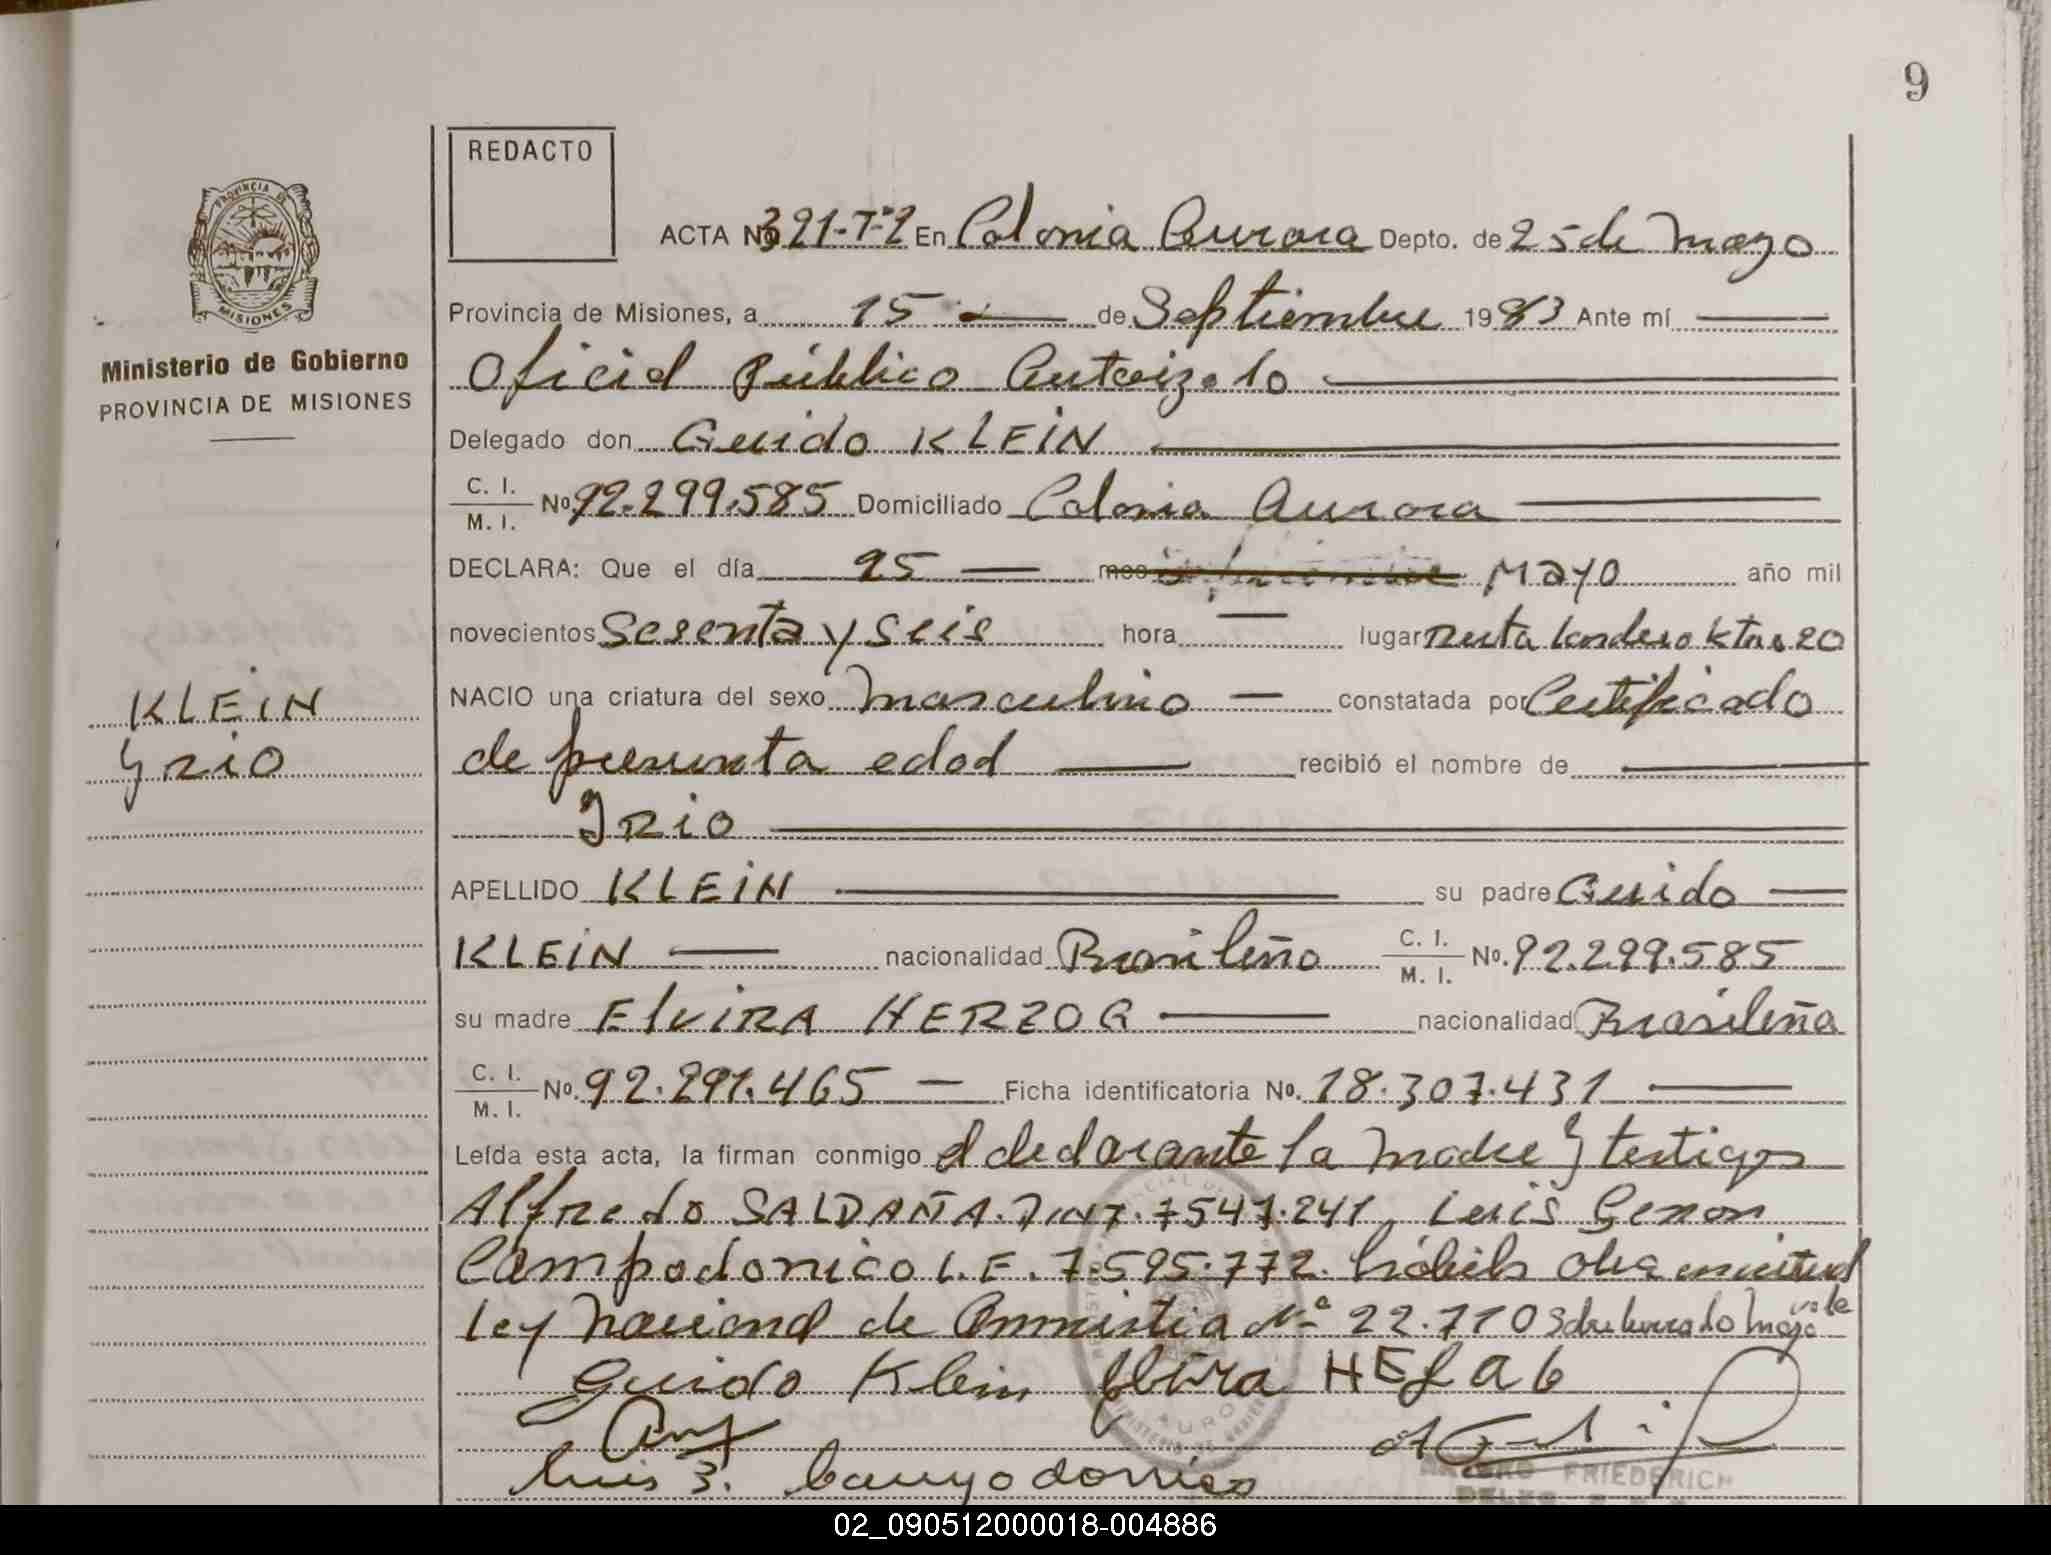 9
REDACTO
ACTA No 321-Tº2 En Colonia Aurora Depto. de 25 de Mayo
Provincia de Misiones, a 15 de Septiembre 1983 Ante mí
Oficial Público Autorizado
Delegado don Guido KLEIN
C. I.
M. I. No. 92.299.585 Domiciliado Colonia Aurora
DECLARA: Que el día 25 mes MAYO año mil
novecientos Sesenta y Seis hora lugar Ruta 20
NACIO una criatura del sexo Masculino constatada por Certificado
de presunta edad recibió el nombre de
Irio
APELLIDO KLEIN su padre Guido
KLEIN nacionalidad Brasileño C. I.
M. I. No. 92.299.585
su madre ElviRA HERZOG nacionalidad Brasileña
C. I.
M. I. No. 92.291.465 Ficha identificatoria No. 18.307.431
Leída esta acta, la firman conmigo el declarante la Madre y testigos
Alfredo SALDAÑA. 7.547.241 Luis Genon
Campodonico L.E. 7.595.772.
ley Nacional de Amnistia Nº 22.710 Sobre Mayo vale
Guido Klein Elvira
Luis Campodonico
ARTURO FRIEDERICH
PROVINCIA DE
MISIONES
Ministerio de Gobierno
PROVINCIA DE MISIONES
KLEIN
Yrio
02_090512000018-004886